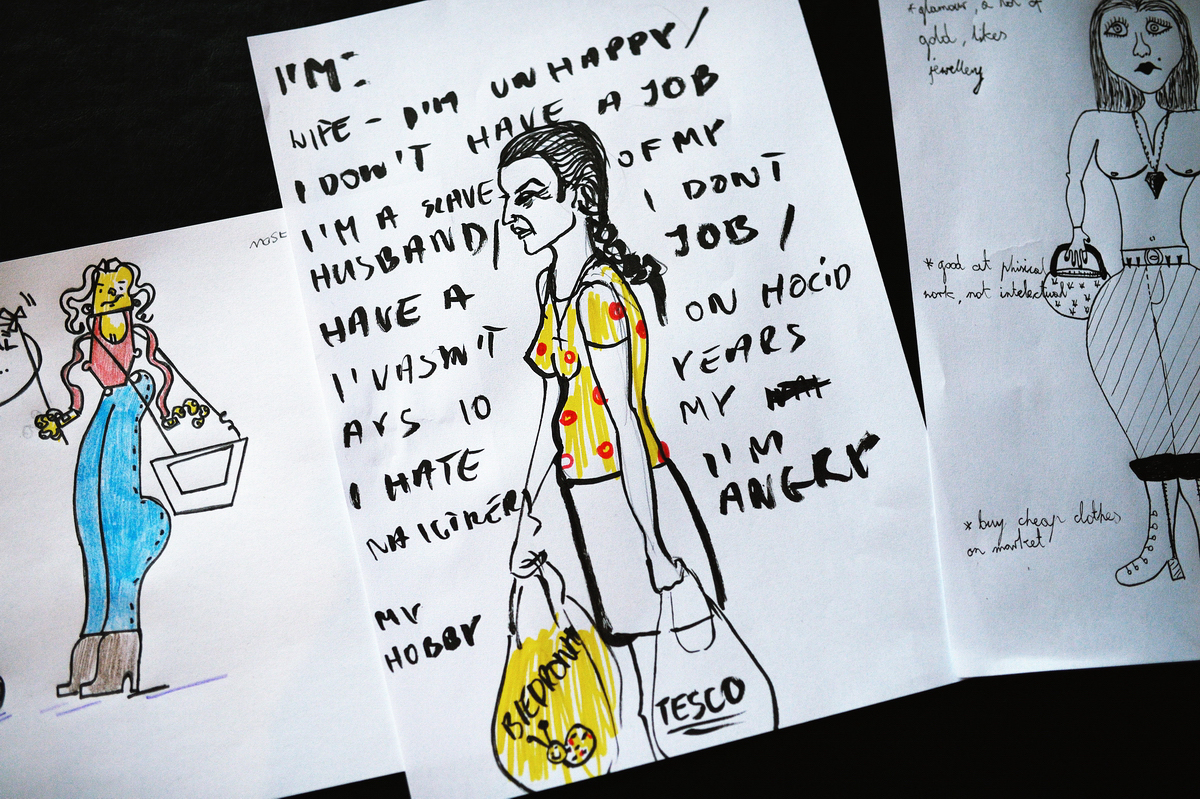 I'M:
WIFE - I'M UNHAPPY/
I DON'T HAVE A JOB
I'M A SLAVE OF MY
HUSBAND/ I DONT
HAVE A JOB/
I'VASN'T ON HOCID
AYS 10 YEARS
I HATE MY
I'M
ANGRY
MY
HOBBY
BIEDRONK
TESCO
*glamour, a lot of
gold, likes
jewellery
*good at phisical
work, not intelectual
*buy cheap clothes
on market